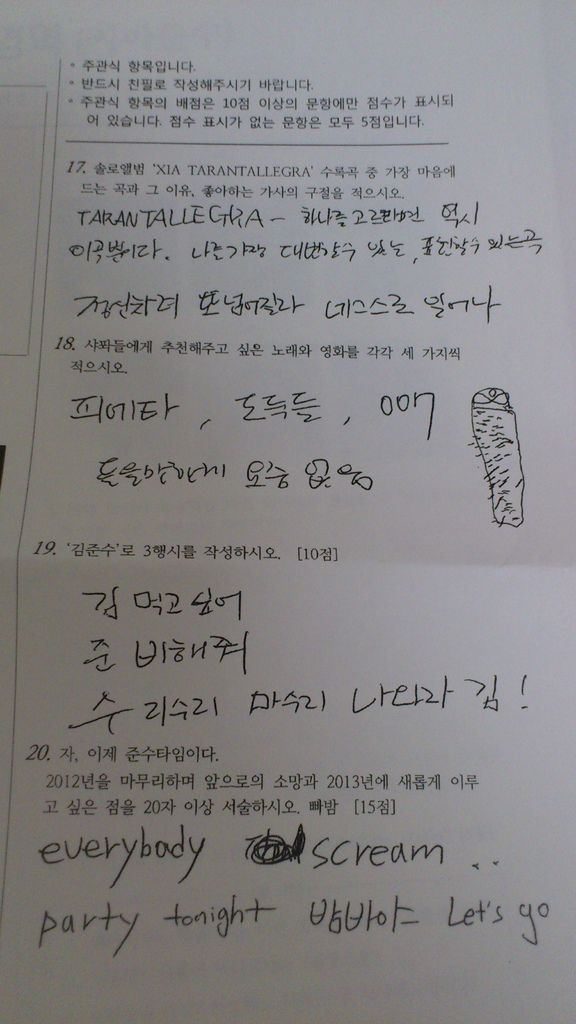 ◦ 주관식 항목입니다.
◦ 반드시 친필로 작성해주시기 바랍니다.
◦ 주관식 항목의 배점은 10점 이상의 문항에만 점수가 표시되
어 있습니다. 점수 표시가 없는 문항은 모두 5점입니다.
17. 솔로앨범 'XIA TARANTALLEGRA' 수록곡 중 가장 마음에
드는 곡과 그 이유, 좋아하는 가사의 구절을 적으시오.
TARANTALLEGRA - 하나를 고르라면 역시
이곡뿐이다. 나를 가장 대변할수 있는, 표현할수 있는곡
정신차려 또 넘어질라 네스스로 일어나
18. 샤퐈들에게 추천해주고 싶은 노래와 영화를 각각 세 가지씩
적으시오.
피에타, 도둑들, 007
요즘 없음
19. '김준수'로 3행시를 작성하시오. [10점]
김 먹고싶어
준 비해줘
수 리수리 마수리 나와라 김!
20. 자, 이제 준수타임이다.
2012년을 마무리하며 앞으로의 소망과 2013년에 새롭게 이루
고 싶은 점을 20자 이상 서술하시오. 빠밤 [15점]
everybody scream ..
party tonight 밤바야 Let's go